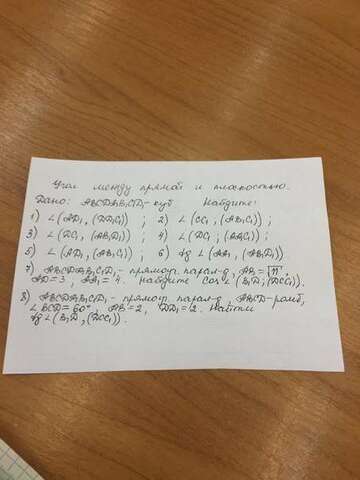 Угол между прямой и плоскостью.
Дано: ABCDA₁B₁C₁D₁ - куб Найдите:
1) ∠(AD₁, (DD₁C₁)) ; 2) ∠(CC₁, (AB₁C₁)) ;
3) ∠(DC₁; (AB₁D₁)) ; 4) ∠(DC₁; (AA₁C₁)) ;
5) ∠(AD₁, (AB₁C₁)) ; 6) tg ∠(AA₁, (AB₁D₁))
7) ABCDA₁B₁C₁D₁ - прямоуг. парал-д, AB = √11;
AD = 3, AA₁ = 4. Найдите cos ∠(B₁D; (DCC₁)).
8) ABCDA₁B₁C₁D₁ - прямоуг. парал-д. ABCD - ромб,
∠BCD = 60°, AB = 2, DD₁ = 2. Найти
tg ∠(B₁D, (DCC₁)).